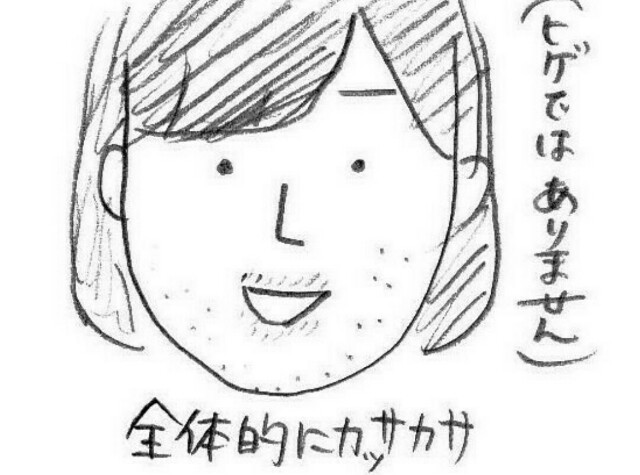 (ヒゲではありません)
全体的にカッサカサ